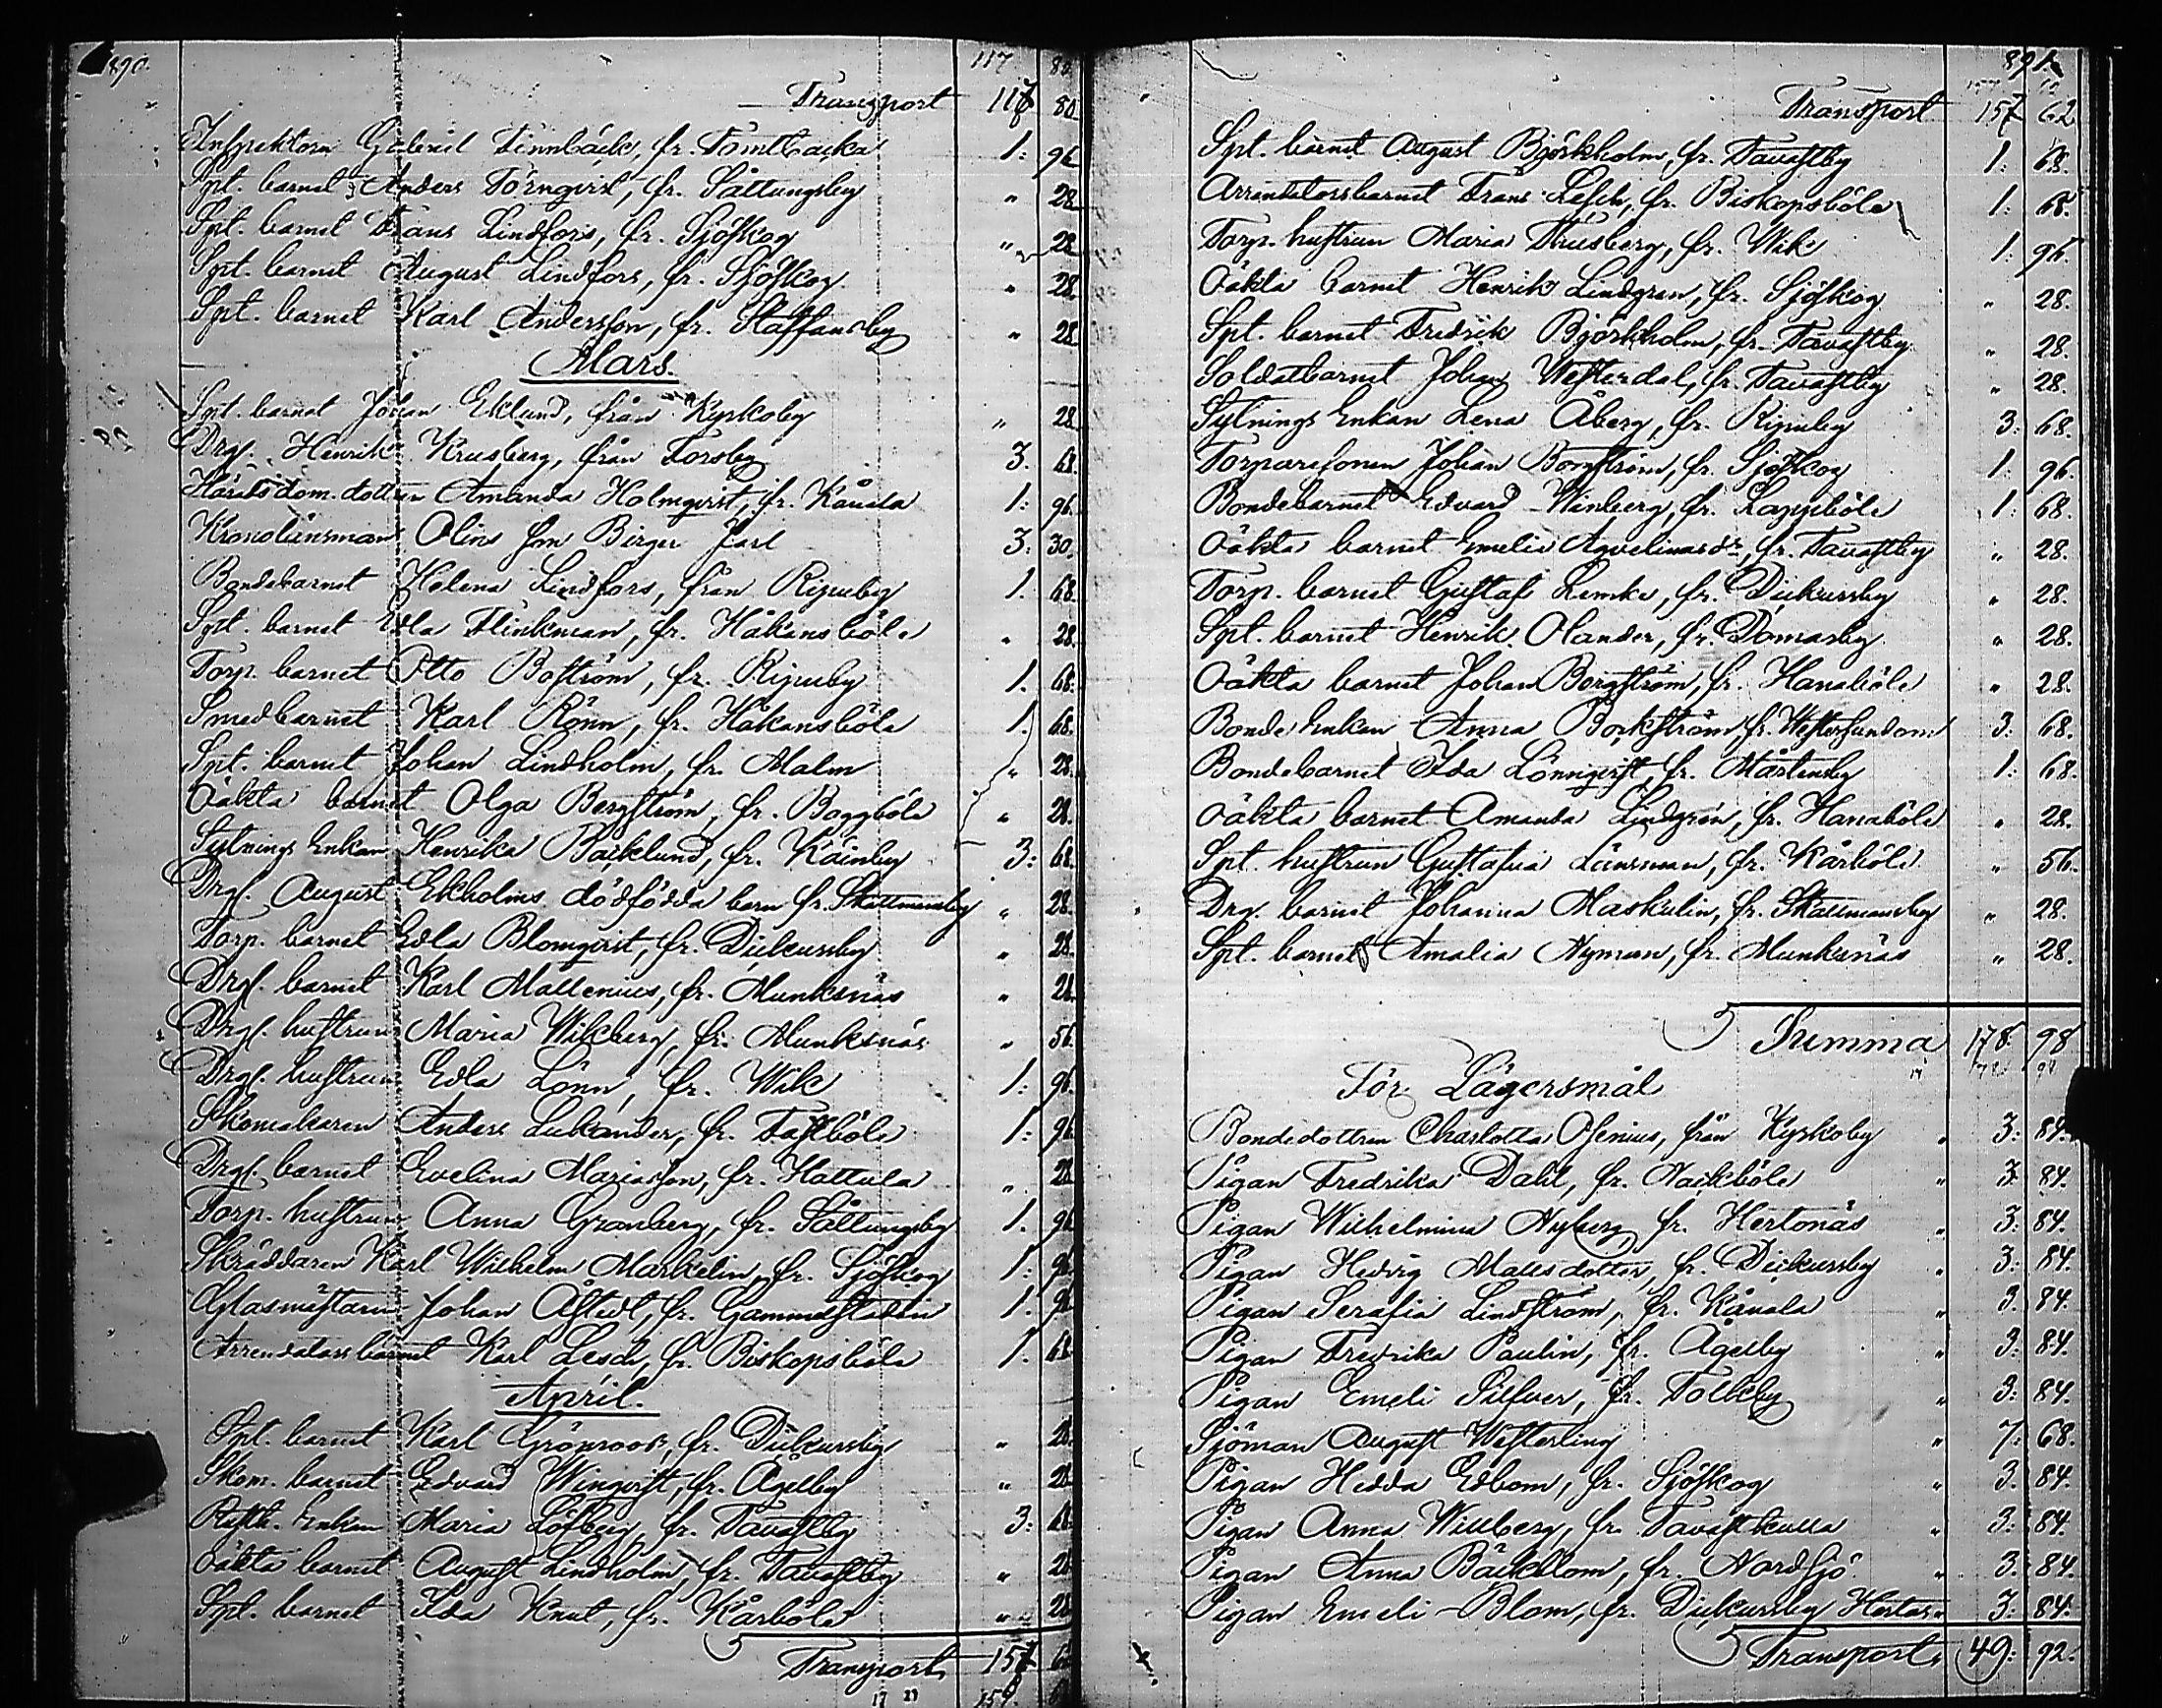 890.
117 80
Transport 117 80
Inspektorn Gabriel Finnbäck, fr. Tomtbacka 1: 96
Spt. barnet Anders Törnqvist, fr. Såttungsby " 28
Spt. barnet Frans Lindfors, fr. Sjöskog " 28
Spt. barnet August Lindfors, fr. Sjöskog " 28.
Spt. barnet Karl Andersson, fr. Staffansby " 28
Mars.
Spt. barnet Johan Eklund, från Kyrkoby " 28
Drg. Henrik Krusberg, från Forsby 3. 68.
Häradsdom. dottren Amanda Holmqvist, fr. Kånala 1: 96.
Kronolänsman Olins son Birger Jarl 3: 30.
Bondebarnet Helena Lindfors, från Ripuby 1. 68.
Spt. barnet Edla Flinkman, fr. Håkansböle " 28.
Torp. barnet Otto Boström, fr. Ripuby 1. 68.
Smedbarnet Karl Rönn, fr. Håkansböle 1. 68.
Spt. barnet Johan Lindholm, fr. Malm " 28
Oäkta barnet Olga Bergström, fr. Boggböle " 28.
Sytnings Enkan Henrika Bäcklund, fr. Käinby 3: 68.
Drg. August Ekholms dödfödda barn fr. Skattmansby " 28.
Torp. barnet Edla Blomqvist, fr. Dickursby " 28.
Drg. barnet Karl Mallenius, fr. Munksnäs " 28.
Drg. hustrun Maria Wikberg, fr. Munksnäs " 56.
Drg. hustrun Edla Lönn, fr. Wik 1: 96.
Skomakaren Anders Lukander, fr. Fastböle 1: 96.
Drg. barnet Evelina Mariasson, fr. Hattula " 28
Torp. hustrun Anna Granberg, fr. Såttungsby 1. 96
Skräddaren Karl Wilhelm Markelin, fr. Sjöskog 1: 96.
Glasmästaren Johan Åstedt, fr. Gammelstaden 1. 96
Arrendatorsbarnet Karl Lesch, fr. Biskopsböle 1. 68.
April.
Spt. barnet Karl Grönroos, fr. Dickursby " 28.
Skom. barnet Edvard Winqvist, fr. Ågelby " 28.
Rusth. Enkan Maria Löfberg, fr. Tavastby 3: 68.
oäkta barnet August Lindholm, fr. Tavastby " 28
Spt. barnet Ida Knut, fr. Kårböle " 28
Transport 157
891.
Transport 157 62
Spt. barnet August Björkholm, fr. Tavastby 1: 68.
Arrendatorsbarnet Frans Lesch, fr. Biskopsböle 1: 68.
Torp. hustrun Maria Thusberg, fr. Wik 1: 96.
Oäkta barnet Henrik Lindgren, fr. Sjöskog " 28.
Spt. barnet Fredrik Björkholm, fr. Tavastby " 28.
Soldatbarnet Johan Westerdal, fr. Tavastby " 28.
Sytnings Enkan Lena Åberg, fr. Ripuby 3: 68.
Torparesonen Johan Borgström, fr. Sjöskog 1: 96.
Bondebarnet Edvard Winberg, fr. Lappböle 1: 68.
Oäkta barnet Emelia Aqvelinasdr, fr. Tavastby " 28.
Torp. barnet Gustaf Lemke, fr. Dickursby " 28.
Spt. barnet Henrik Olander, fr. Domarby " 28.
Oäkta barnet Johan Bergström, fr. Hanaböle " 28.
Bonde Enkan Anna Bockström fr. Westersundom 3: 68.
Bondebarnet Ida Lönnqvist, fr. Mårtensby 1: 68.
oäkta barnet Amanda Lindgrén, fr. Hanaböle " 28.
Spt. hustrun Gustafva Länsman, fr. Kårböle " 56.
Drg. barnet Johanna Maskulin, fr. Skattmansby " 28.
Spt. barnet Amalia Nyman, fr. Munksnäs " 28.
Summa 178. 98
För Lägersmål
Bondedottren Charlotta Osenius, från Kyrkoby " 3: 84.
Pigan Fredrika Dahl, fr. Nackböle " 3 84.
Pigan Wilhelmina Nyberg, fr. Hertonäs " 3: 84.
Pigan Hedvig Mattsdotter, fr. Dickursby " 3: 84.
Pigan Serafia Lindström, fr. Kånala " 3. 84.
Pigan Fredrika Paulin, fr. Ågelby " 3: 84.
Pigan Emeli Silfver, fr. Tolkby " 3: 84.
Sjöman August Westerling " 7: 68.
Pigan Hedda Edbom, fr. Sjöskog " 3. 84.
Pigan Anna Willberg, fr. Tavastkulla " 3: 84.
Pigan Anna Bäckblom, fr. Nordsjö " 3. 84.
Pigan Emeli Blom, fr. Dickursby Hertas " 3: 84.
Transport " 49: 92.